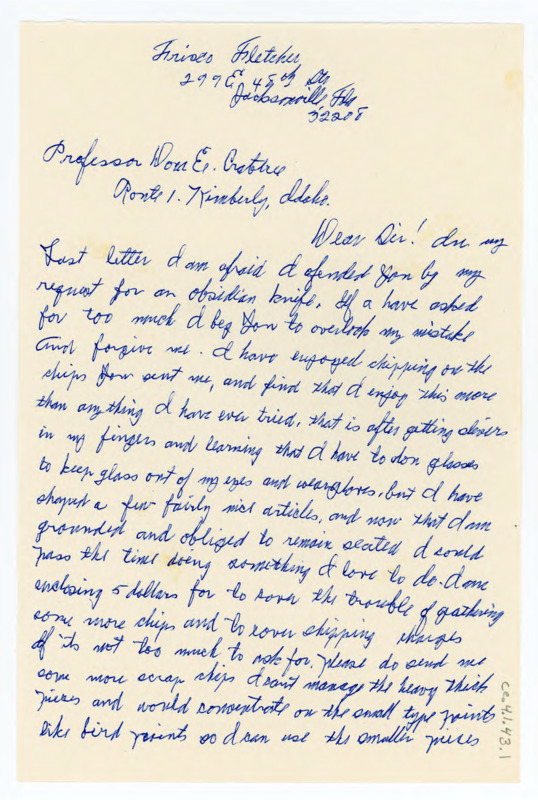 Frisco Fletcher
299 E 48th Str
Jacksonville, Fla
32208
Professor Don E. Crabtree
Route 1. Kimberly, Idaho.
Dear Sir! In my
Last letter I am afraid I ofended You by my
request for an obsidian knife. If a have asked
for too much I beg You to overlook my mistake
and forgive me. I have enjoyed chipping on the
chips You sent me, and find that I enjoy this more
than anything I have ever tried, that is after getting slivers
in my fingers and learning that I have to don glasses
to keep glass out of my eyes and wear gloves, but I have
shaped a few fairly nice articles, and now that I am
grounded and obliged to remain seated I could
pass the time doing something I love to do. I am
enclosing 5 dollars for to cover the trouble of gathering
some more chips and to cover shipping charges
If its not too much to ask for. please do send me
some more scrap chips I can't manage the heavy thick
pieces and would concentrate on the small type points
like bird points so I can use the smaller pieces
cc.41.43.1